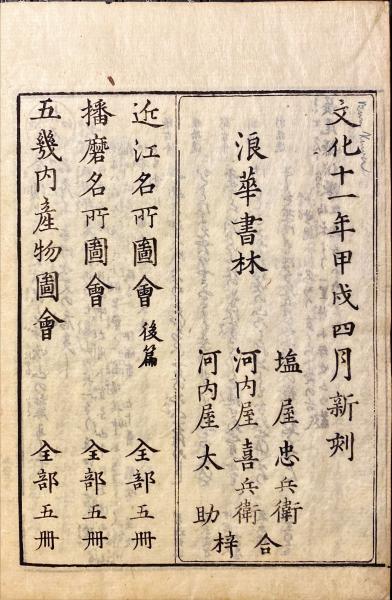 文化十一年甲戌四月新刻
浪華書林
塩屋忠兵衛
河内屋喜兵衛
河内屋太助
合梓
近江名所圖會後篇 全部五冊
播磨名所圖會 全部五冊
五畿内產物圖會 全部五冊